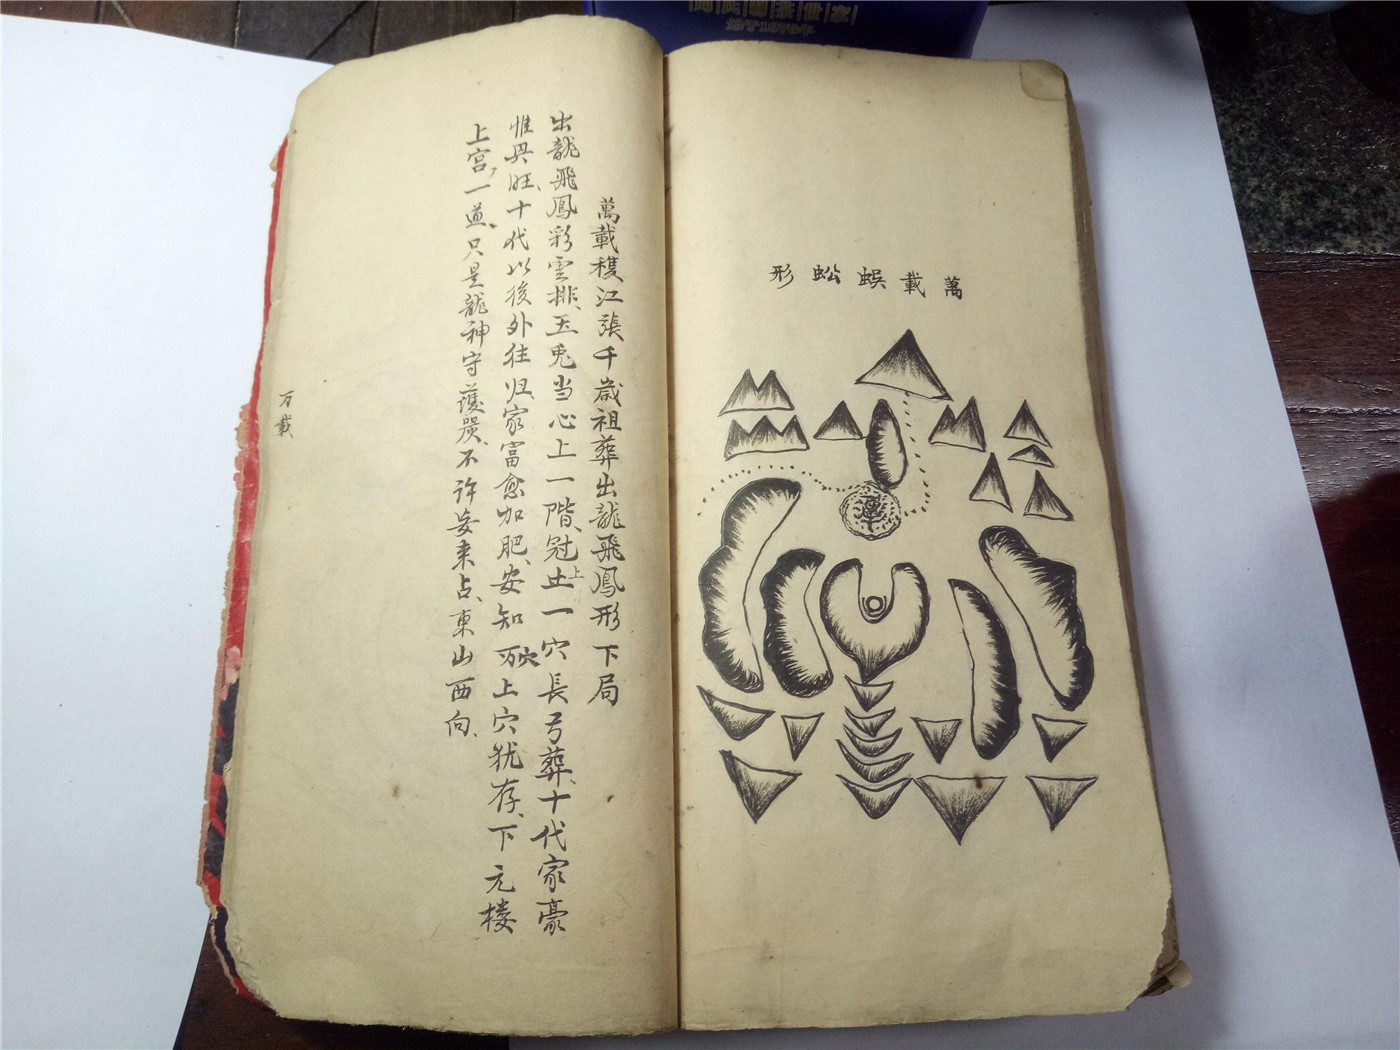 萬載蜈蚣形
萬載穫江張千歲祖葬出龍飛鳳形下局
出龍飛鳳彩雲排、玉兎当心上一階、冠上一穴長弓葬、十代家豪
惟興旺、十代以後外往归、家富愈加肥、安知穴上穴犹存、下元楼
上宫、一道、只是龍神守護炭、不许妄来占、東山西向、
万載
始于1978年